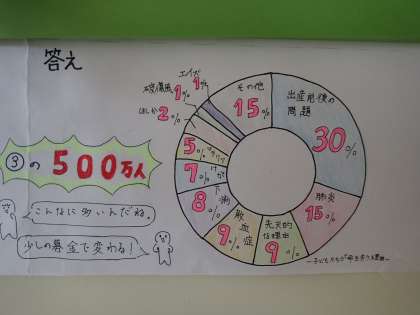 答え
③の500万人
こんなに多いんだね。
少しの募金で変わる!
出産前後の
問題
30%
肺炎
15%
先天的
な理由
9%
敗血症
9%
下痢
8%
けが
7%
マラリア
5%
はしか
2%
破傷風
1%
エイズ
1%
その他
15%